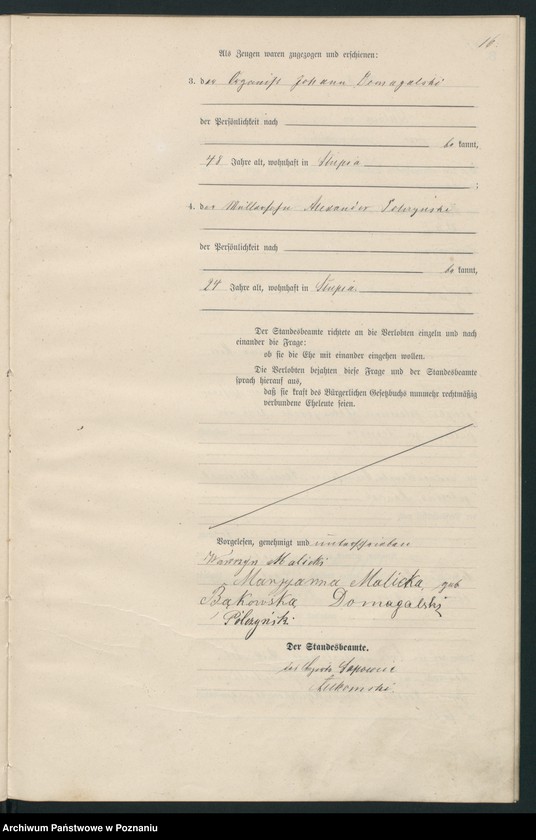 16.
Als Zeugen waren zugezogen und erschienen:
3. der Organist Johann Domagalski
der Persönlichkeit nach
be kannt,
48 Jahre alt, wohnhaft in Słupia
;
4. der Müllersohn Alexander Polczyński
der Persönlichkeit nach
be kannt,
24 Jahre alt, wohnhaft in Słupia.
Der Standesbeamte richtete an die Verlobten einzeln und nach
einander die Frage:
ob sie die Ehe mit einander eingehen wollen.
Die Verlobten bejahten diese Frage und der Standesbeamte
sprach hierauf aus,
daß sie kraft des Bürgerlichen Gesetzbuchs nunmehr rechtmäßig
verbundene Eheleute seien.
Vorgelesen, genehmigt und unterschrieben
Wawrzyn Malicki
Maryjanna Malicka geb
Bąkowska Domagalski
Pólczyński
Der Standesbeamte.